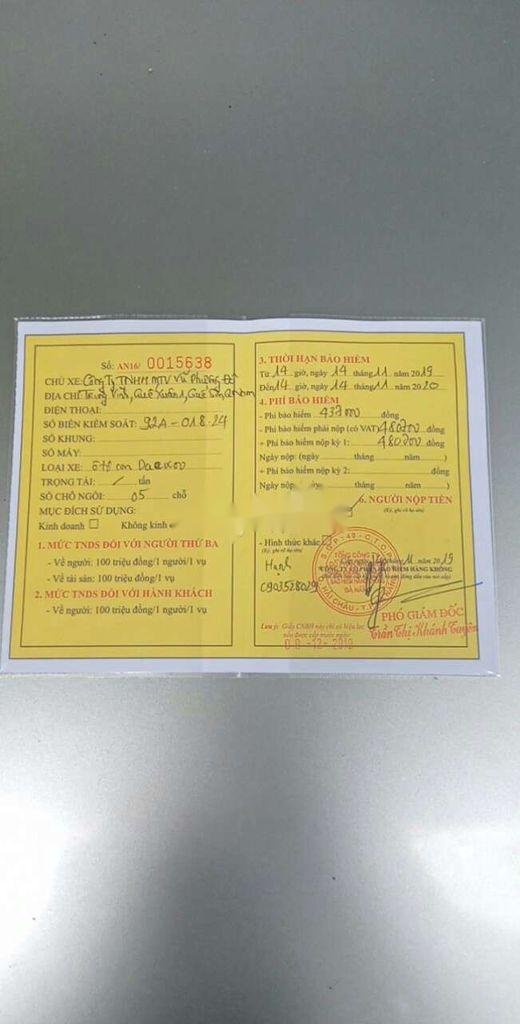 SỐ: AN16/ 0015638
CHỦ XE: Công Ty TNHH MTV Vũ Phương Đô
ĐỊA CHỈ: Trung Vĩnh, Quế Xuân 1, Quế Sơn, QNam
ĐIỆN THOẠI:
SỐ BIỂN KIỂM SOÁT: 92A - 018.24
SỐ KHUNG:
SỐ MÁY:
LOẠI XE: ô tô con Daewoo
TRỌNG TẢI: / tấn
SỐ CHỖ NGỒI: 05 chỗ
MỤC ĐÍCH SỬ DỤNG:
Kinh doanh Không kinh
1. MỨC TNDS ĐỐI VỚI NGƯỜI THỨ BA
- Về người: 100 triệu đồng/1 người/1 vụ
- Về tài sản: 100 triệu đồng/1 người/1 vụ
2. MỨC TNDS ĐỐI VỚI HÀNH KHÁCH
- Về người: 100 triệu đồng/1 người/1 vụ
3. THỜI HẠN BẢO HIỂM
Từ 14 giờ, ngày 14 tháng 11 năm 2019
Đến 14 giờ, ngày 14 tháng 11 năm 2020
4. PHÍ BẢO HIỂM
- Phí bảo hiểm 437000 đồng
- Phí bảo hiểm phải nộp (có VAT) 480700
+ Phí bảo hiểm nộp kỳ 1: 480700 đồng
Ngày nộp: (ngày tháng năm )
+ Phí bảo hiểm nộp kỳ 2: đồng
Ngày nộp tháng năm )
6. NGƯỜI NỘP TIỀN
(Ký, ghi rõ họ tên)
- Hình thức khác
(Ký, ghi rõ họ tên)
Hạnh
0903528029
11 năm 2019
TỔNG CÔNG TY CỔ PHẦN BẢO HIỂM HÀNG KHÔNG
HẢI CHÂU - T.P
PHÓ GIÁM ĐỐC
Trần Thị Khánh Tuyên
Lưu ý: Giấy CNBH này chỉ có hiệu lực
nếu được cấp trước ngày: